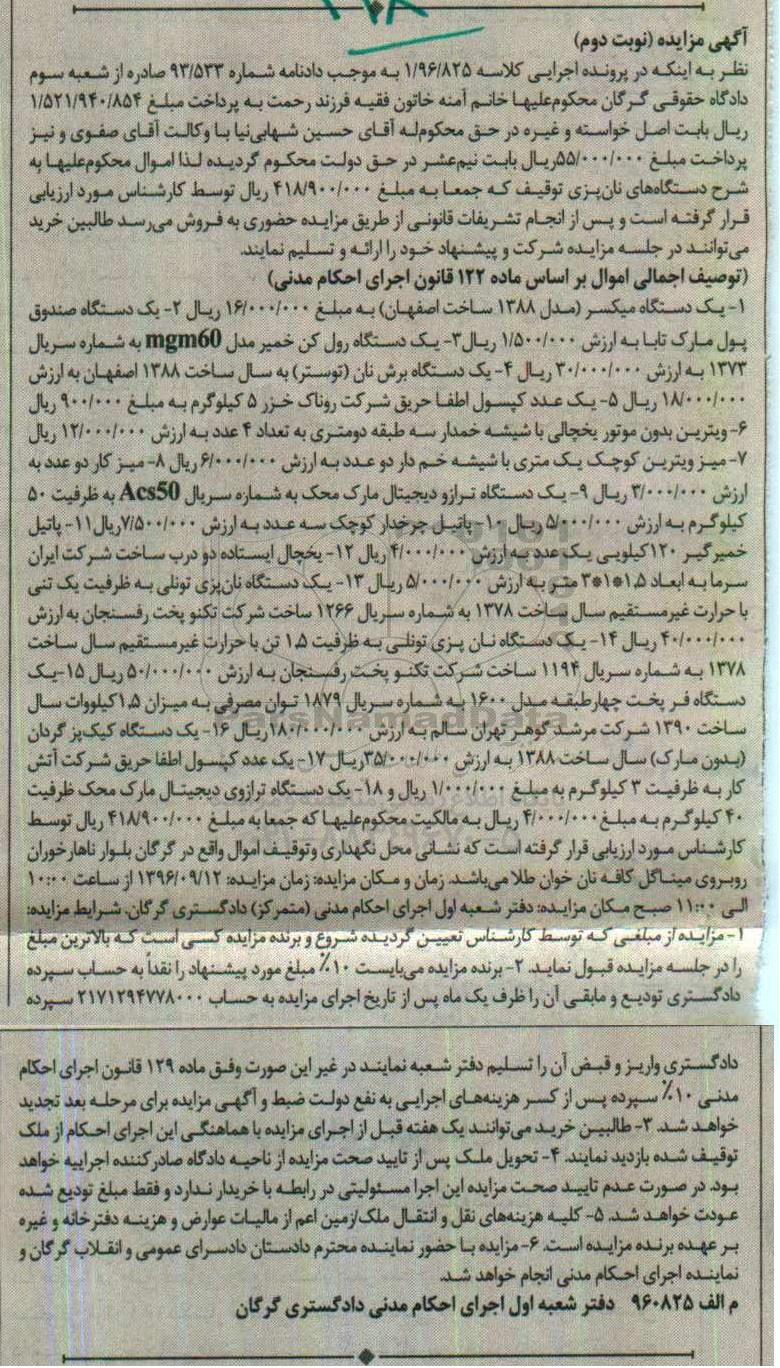 آگهی مزایده (نوبت دوم)
نظر به اینکه در پرونده اجرایی کلاسه ۱/۹۶/۸۲۵ به موجب دادنامه شماره ۹۳/۵۳۳ صادره از شعبه سوم
دادگاه حقوقی گرگان محکوم‌علیها خانم آمنه خاتون فقیه فرزند رحمت به پرداخت مبلغ ۱/۵۲۱/۹۴۰/۸۵۴
ریال بابت اصل خواسته و غیره در حق محکوم‌له آقای حسین شهابی‌نیا با وکالت آقای صفوی و نیز
پرداخت مبلغ ۵۵/۰۰۰/۰۰۰ریال بابت نیم‌عشر در حق دولت محکوم گردیده لذا اموال محکوم‌علیها به
شرح دستگاه‌های نان‌پزی توقیف که جمعا به مبلغ ۴۱۸/۹۰۰/۰۰۰ ریال توسط کارشناس مورد ارزیابی
قرار گرفته است و پس از انجام تشریفات قانونی از طریق مزایده حضوری به فروش می‌رسد طالبین خرید
می‌توانند در جلسه مزایده شرکت و پیشنهاد خود را ارائه و تسلیم نمایند.
(توصیف اجمالی اموال بر اساس ماده ۱۲۲ قانون اجرای احکام مدنی)
۱- یک دستگاه میکسر (مدل ۱۳۸۸ ساخت اصفهان) به مبلغ ۱۶/۰۰۰/۰۰۰ ریال ۲- یک دستگاه صندوق
پول مارک تابا به ارزش ۱/۵۰۰/۰۰۰ ریال۳- یک دستگاه رول کن خمیر مدل mgm60 به شماره سریال
۱۳۷۳ به ارزش ۳۰/۰۰۰/۰۰۰ ریال ۴- یک دستگاه برش نان (توستر) به سال ساخت ۱۳۸۸ اصفهان به ارزش
۱۸/۰۰۰/۰۰۰ ریال ۵- یک عدد کپسول اطفا حریق شرکت روناک خزر ۵ کیلوگرم به مبلغ ۹۰۰/۰۰۰ ریال
۶- ویترین بدون موتور یخچالی با شیشه خمدار سه طبقه دومتری به تعداد ۴ عدد به ارزش ۱۲/۰۰۰/۰۰۰ ریال
۷- میز ویترین کوچک یک متری با شیشه خم دار دو عدد به ارزش ۶/۰۰۰/۰۰۰ ریال ۸- میز کار دو عدد به
ارزش ۳/۰۰۰/۰۰۰ ریال ۹- یک دستگاه ترازو دیجیتال مارک محک به شماره سریال Acs50 به ظرفیت ۵۰
کیلوگرم به ارزش ۵/۰۰۰/۰۰۰ ریال ۱۰- پاتیل چرخدار کوچک سه عدد به ارزش ۷/۵۰۰/۰۰۰ریال۱۱- پاتیل
خمیرگیر ۱۲۰کیلویی یک عدد به ارزش ۴/۰۰۰/۰۰۰ ریال ۱۲- یخچال ایستاده دو درب ساخت شرکت ایران
سرما به ابعاد ۱٫۵*۱*۳ متر به ارزش ۵/۰۰۰/۰۰۰ ریال ۱۳- یک دستگاه نان‌پزی تونلی به ظرفیت یک تنی
با حرارت غیرمستقیم سال ساخت ۱۳۷۸ به شماره سریال ۱۲۶۶ ساخت شرکت تکنو پخت رفسنجان به ارزش
۴۰/۰۰۰/۰۰۰ ریال ۱۴- یک دستگاه نان پزی تونلی به ظرفیت ۱٫۵ تن با حرارت غیرمستقیم سال ساخت
۱۳۷۸ به شماره سریال ۱۱۹۴ ساخت شرکت تکنو پخت رفسنجان به ارزش ۵۰/۰۰۰/۰۰۰ ریال ۱۵-یک
دستگاه فر پخت چهارطبقه مدل ۱۶۰۰ به شماره سریال ۱۸۷۹ توان مصرفی به میزان ۱٫۵کیلووات سال
ساخت ۱۳۹۰ شرکت مرشد گوهر تهران سالم به ارزش ۱۸۰/۰۰۰/۰۰۰ریال ۱۶- یک دستگاه کیک‌پز گردان
(بدون مارک) سال ساخت۱۳۸۸ به ارزش ۳۵/۰۰۰/۰۰۰ریال ۱۷- یک عدد کپسول اطفا حریق شرکت آتش
کار به ظرفیت ۳ کیلوگرم به مبلغ ۱/۰۰۰/۰۰۰ ریال و ۱۸- یک دستگاه ترازوی دیجیتال مارک محک ظرفیت
۴۰ کیلوگرم به مبلغ۴/۰۰۰/۰۰۰ ریال به مالکیت محکوم‌علیها که جمعا به مبلغ ۴۱۸/۹۰۰/۰۰۰ ریال توسط
کارشناس مورد ارزیابی قرار گرفته است که نشانی محل نگهداری وتوقیف اموال واقع در گرگان بلوار ناهارخوران
روبروی میناگل کافه نان خوان طلا می‌باشد. زمان و مکان مزایده: زمان مزایده: ۱۳۹۶/۰۹/۱۲ از ساعت ۱۰:۰۰
الی ۱۱:۰۰ صبح مکان مزایده: دفتر شعبه اول اجرای احکام مدنی (متمرکز) دادگستری گرگان. شرایط مزایده:
۱- مزایده از مبلغی که توسط کارشناس تعیین گردیده شروع و برنده مزایده کسی است که بالاترین مبلغ
را در جلسه مزایده قبول نماید. ۲- برنده مزایده می‌بایست ۱۰٪ مبلغ مورد پیشنهاد را نقداً به حساب سپرده
دادگستری تودیع و مابقی آن را ظرف یک ماه پس از تاریخ اجرای مزایده به حساب ۲۱۷۱۲۹۴۷۷۸۰۰۰ سپرده
دادگستری واریز و قبض آن را تسلیم دفتر شعبه نمایند در غیر این صورت وفق ماده ۱۲۹ قانون اجرای احکام
مدنی ۱۰٪ سپرده پس از کسر هزینه‌های اجرایی به نفع دولت ضبط و آگهی مزایده برای مرحله بعد تجدید
خواهد شد. ۳- طالبین خرید می‌توانند یک هفته قبل از اجرای مزایده با هماهنگی این اجرای احکام از ملک
توقیف شده بازدید نمایند. ۴- تحویل ملک پس از تایید صحت مزایده از ناحیه دادگاه صادرکننده اجراییه خواهد
بود. در صورت عدم تایید صحت مزایده این اجرا مسئولیتی در رابطه با خریدار ندارد و فقط مبلغ تودیع شده
عودت خواهد شد. ۵- کلیه هزینه‌های نقل و انتقال ملک/زمین اعم از مالیات عوارض و هزینه دفترخانه و غیره
بر عهده برنده مزایده است. ۶- مزایده با حضور نماینده محترم دادستان دادسرای عمومی و انقلاب گرگان و
نماینده اجرای احکام مدنی انجام خواهد شد.
م الف ۹۶۰۸۲۵ دفتر شعبه اول اجرای احکام مدنی دادگستری گرگان